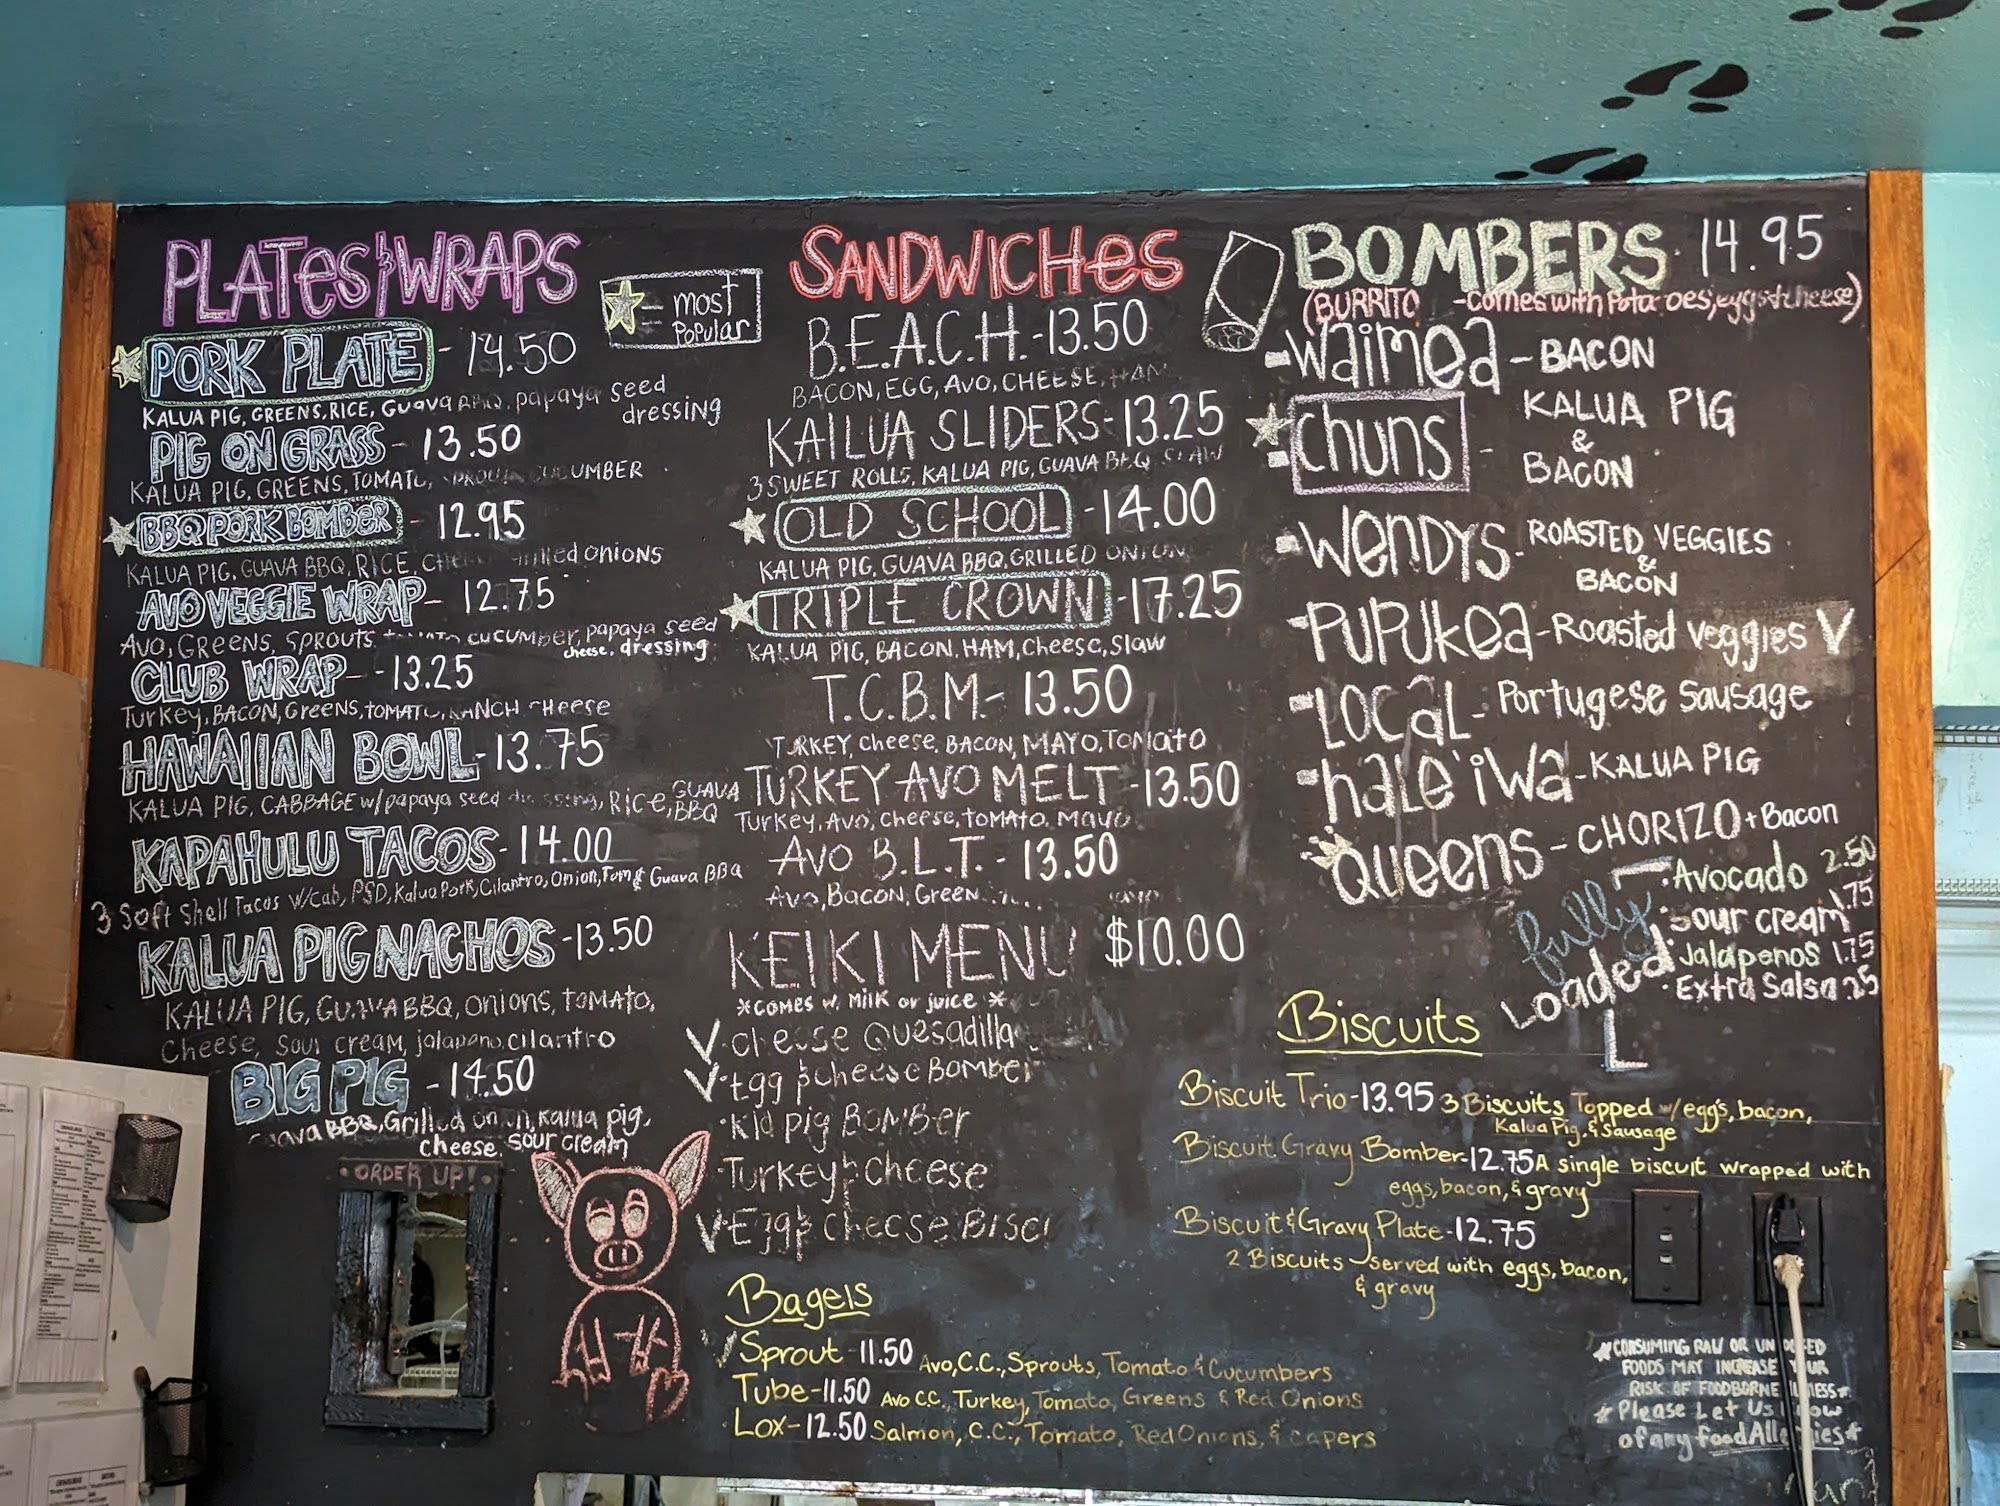 PLATES & WRAPS
= most
Popular
PORK PLATE - 14.50
KALUA PIG, GREENS, RICE, Guava BBQ, papaya seed
dressing
PIG ON GRASS - 13.50
KALUA PIG, GREENS, TOMATO, SPROUT, CUCUMBER
BBQ PORK BOMBER - 12.95
KALUA PIG, GUAVA BBQ, RICE, grilled onions
AVO VEGGIE WRAP - 12.75
AVO, GREENS, SPROUTS, tomato, cucumber, papaya seed
cheese, dressing
CLUB WRAP - 13.25
Turkey, BACON, Greens, TOMATO, RANCH cheese
HAWAIIAN BOWL - 13.75
KALUA PIG, CABBAGE w/ papaya seed dressing, RICE, GUAVA
BBQ
KAPAHULU TACOS - 14.00
3 Soft Shell Tacos w/Cab, PSD, Kalua Pork, Cilantro, Onion, Tom & Guava BBQ
KALUA PIG NACHOS - 13.50
KALUA PIG, GUAVA BBQ, onions, TOMATO,
Cheese, sour cream, jalapeno, cilantro
BIG PIG - 14.50
Guava BBQ, Grilled onion, Kalua pig,
cheese, sour cream
• ORDER UP! •
SANDWICHES
B.E.A.C.H. - 13.50
BACON, EGG, AVO, CHEESE, HAM
KAILUA SLIDERS - 13.25
3 SWEET ROLLS, KALUA PIG, GUAVA BBQ SLAW
OLD SCHOOL - 14.00
KALUA PIG, GUAVA BBQ, GRILLED ONION
TRIPLE CROWN - 17.25
KALUA PIG, BACON, HAM, Cheese, Slaw
T.C.B.M. - 13.50
TURKEY, Cheese, BACON, MAYO, TOMATO
TURKEY AVO MELT - 13.50
Turkey, Avo, cheese, tomato, Mayo
AVO B.L.T. - 13.50
Avo, Bacon, Green
KEIKI MENU $10.00
*COMES w. MILK or juice *
V • cheese Quesadilla
V • Egg & cheese Bomber
• Kid pig BOMBER
• Turkey & cheese
V • Egg & cheese Bisc
Bagels
Sprout - 11.50 Avo, C.C., Sprouts, Tomato & Cucumbers
Tube - 11.50 Avo C.C., Turkey, Tomato, Greens & Red Onions
Lox - 12.50 Salmon, C.C., Tomato, Red Onions, & capers
BOMBERS • 14.95
(BURRITO - comes with Potatoes, eggs & cheese)
- Waimea - BACON
- Chuns - KALUA PIG
&
BACON
- Wendys - ROASTED VEGGIES
&
BACON
- PUPUKea - Roasted veggies V
- LOCAL - Portugese Sausage
- hale'iwa - KALUA PIG
Queens - CHORIZO + Bacon
fully
Loaded
• Avocado 2.50
• Sour cream 1.75
• Jalapenos 1.75
• Extra Salsa .25
Biscuits
Biscuit Trio - 13.95 3 Biscuits Topped w/ eggs, bacon,
Kalua Pig, & Sausage
Biscuit Gravy Bomber - 12.75 A single biscuit wrapped with
eggs, bacon, & gravy
Biscuit & Gravy Plate - 12.75
2 Biscuits - served with eggs, bacon,
& gravy
* CONSUMING RAW OR UNCOOKED
FOODS MAY INCREASE YOUR
RISK OF FOODBORNE ILLNESS *
* Please Let Us Know
of any food Allergies *